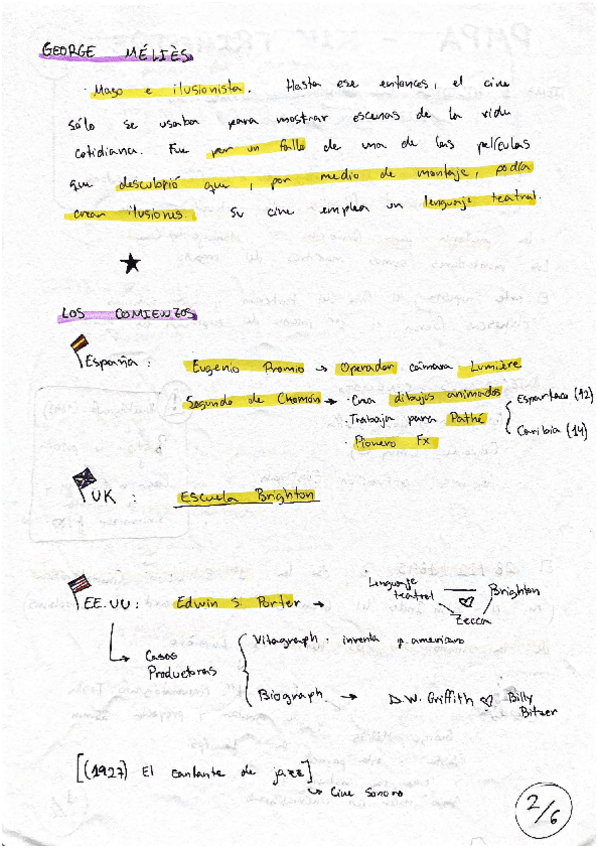 GEORGE MÉLIÈS.
· Mago e ilusionista. Hasta ese entonces, el cine
sólo se usaba para mostrar escenas de la vida
cotidiana. Fue por un fallo de una de las películas
que descubrió que, por medio de montaje, podía
crear ilusiones. Su cine emplea un lenguaje teatral.
LOS COMIENZOS
España: Eugenio Promio → Operador cámara Lumière
Segundo de Chomón → · Crea dibujos animados
· Trabaja para Pathé
· Pionero Fx
Espartaco (12)
Caribia (14)
UK: Escuela Brighton
EE.UU: Edwin S. Porter →
Lenguaje teatral
Brighton
Zecca
Casas Productoras
Vitagraph. inventa p. americano
Biograph → D.W. Griffith ♡ Billy Bitzer
[(1927) El cantante de jazz]
↳ Cine Sonoro
2/6